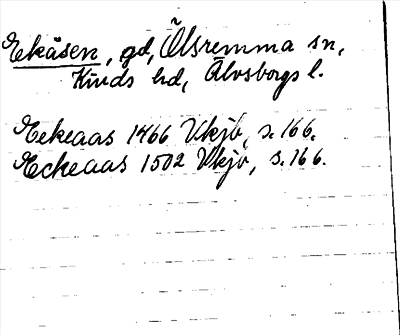 Ekåsen, gd, Ölsremma sn,
Kinds hd, Älvsborgs l.
Eekeaas 1466 Vkjb, s. 166.
Eckeaas 1502 Vkjb, s. 166.